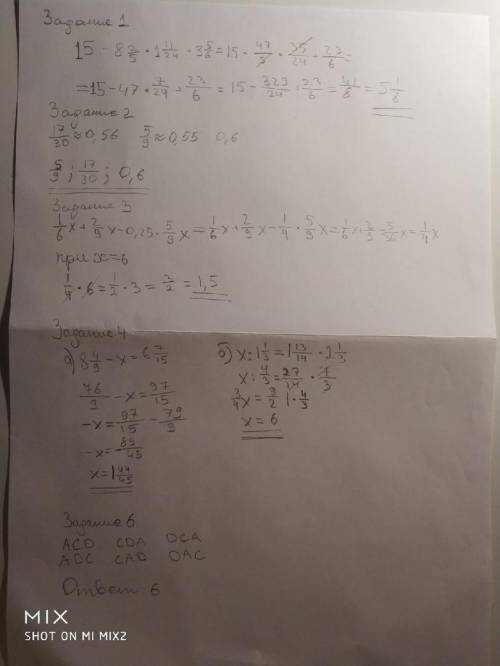 Задание 1
15 - 8 2/5 · 1 11/24 + 3 5/6 = 15 - 47/5 · 35/24 + 23/6 =
= 15 - 47 · 7/24 + 23/6 = 15 - 329/24 + 23/6 = 41/8 = 5 1/8
Задание 2
17/30 ≈ 0,56 5/9 ≈ 0,55 0,6
5/9 ; 17/30 ; 0,6
Задание 3
1/6 x + 2/9 x - 0,25 · 5/9 x = 1/6 x + 2/9 x - 1/4 · 5/9 x = 1/6 x + 2/9 - 5/36 x = 1/4 x
при x = 6
1/4 · 6 = 1/2 · 3 = 3/2 = 1,5
Задание 4
а) 8 4/9 - x = 6 7/15
76/9 - x = 97/15
-x = 97/15 - 79/9
-x = - 89/45
x = 1 44/45
б) x : 1 1/3 = 1 13/14 · 2 1/3
x : 4/3 = 27/14 · 7/3
3/4 x = 9/2 | · 4/3
x = 6
Задание 6
ACD CDA DCA
ADC CAD DAC
Ответ: 6
MIX
SHOT ON MI MIX2